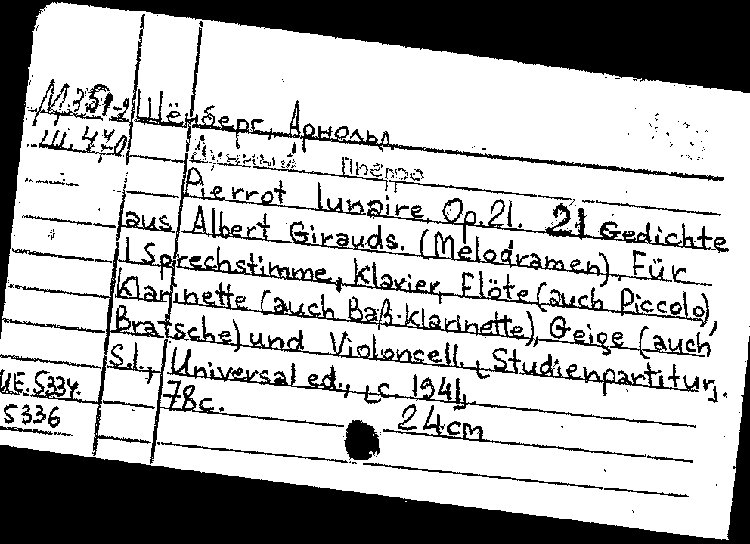 М351-2 Шёнберг, Арнольд
Ш.470 Лунный Пьерро
Pierrot lunaire. Op.21. 21 Gedichte
aus Albert Girauds. (Melodramen). Für
1 Sprechstimme, Klavier, Flöte (auch Piccolo),
Klarinette (auch Baß-Klarinette), Geige (auch
Bratsche) und Violoncell. [Studienpartitur].
S.l., Universal ed., [c. 1941].
UE. 5334. 78c. 24cm
5336